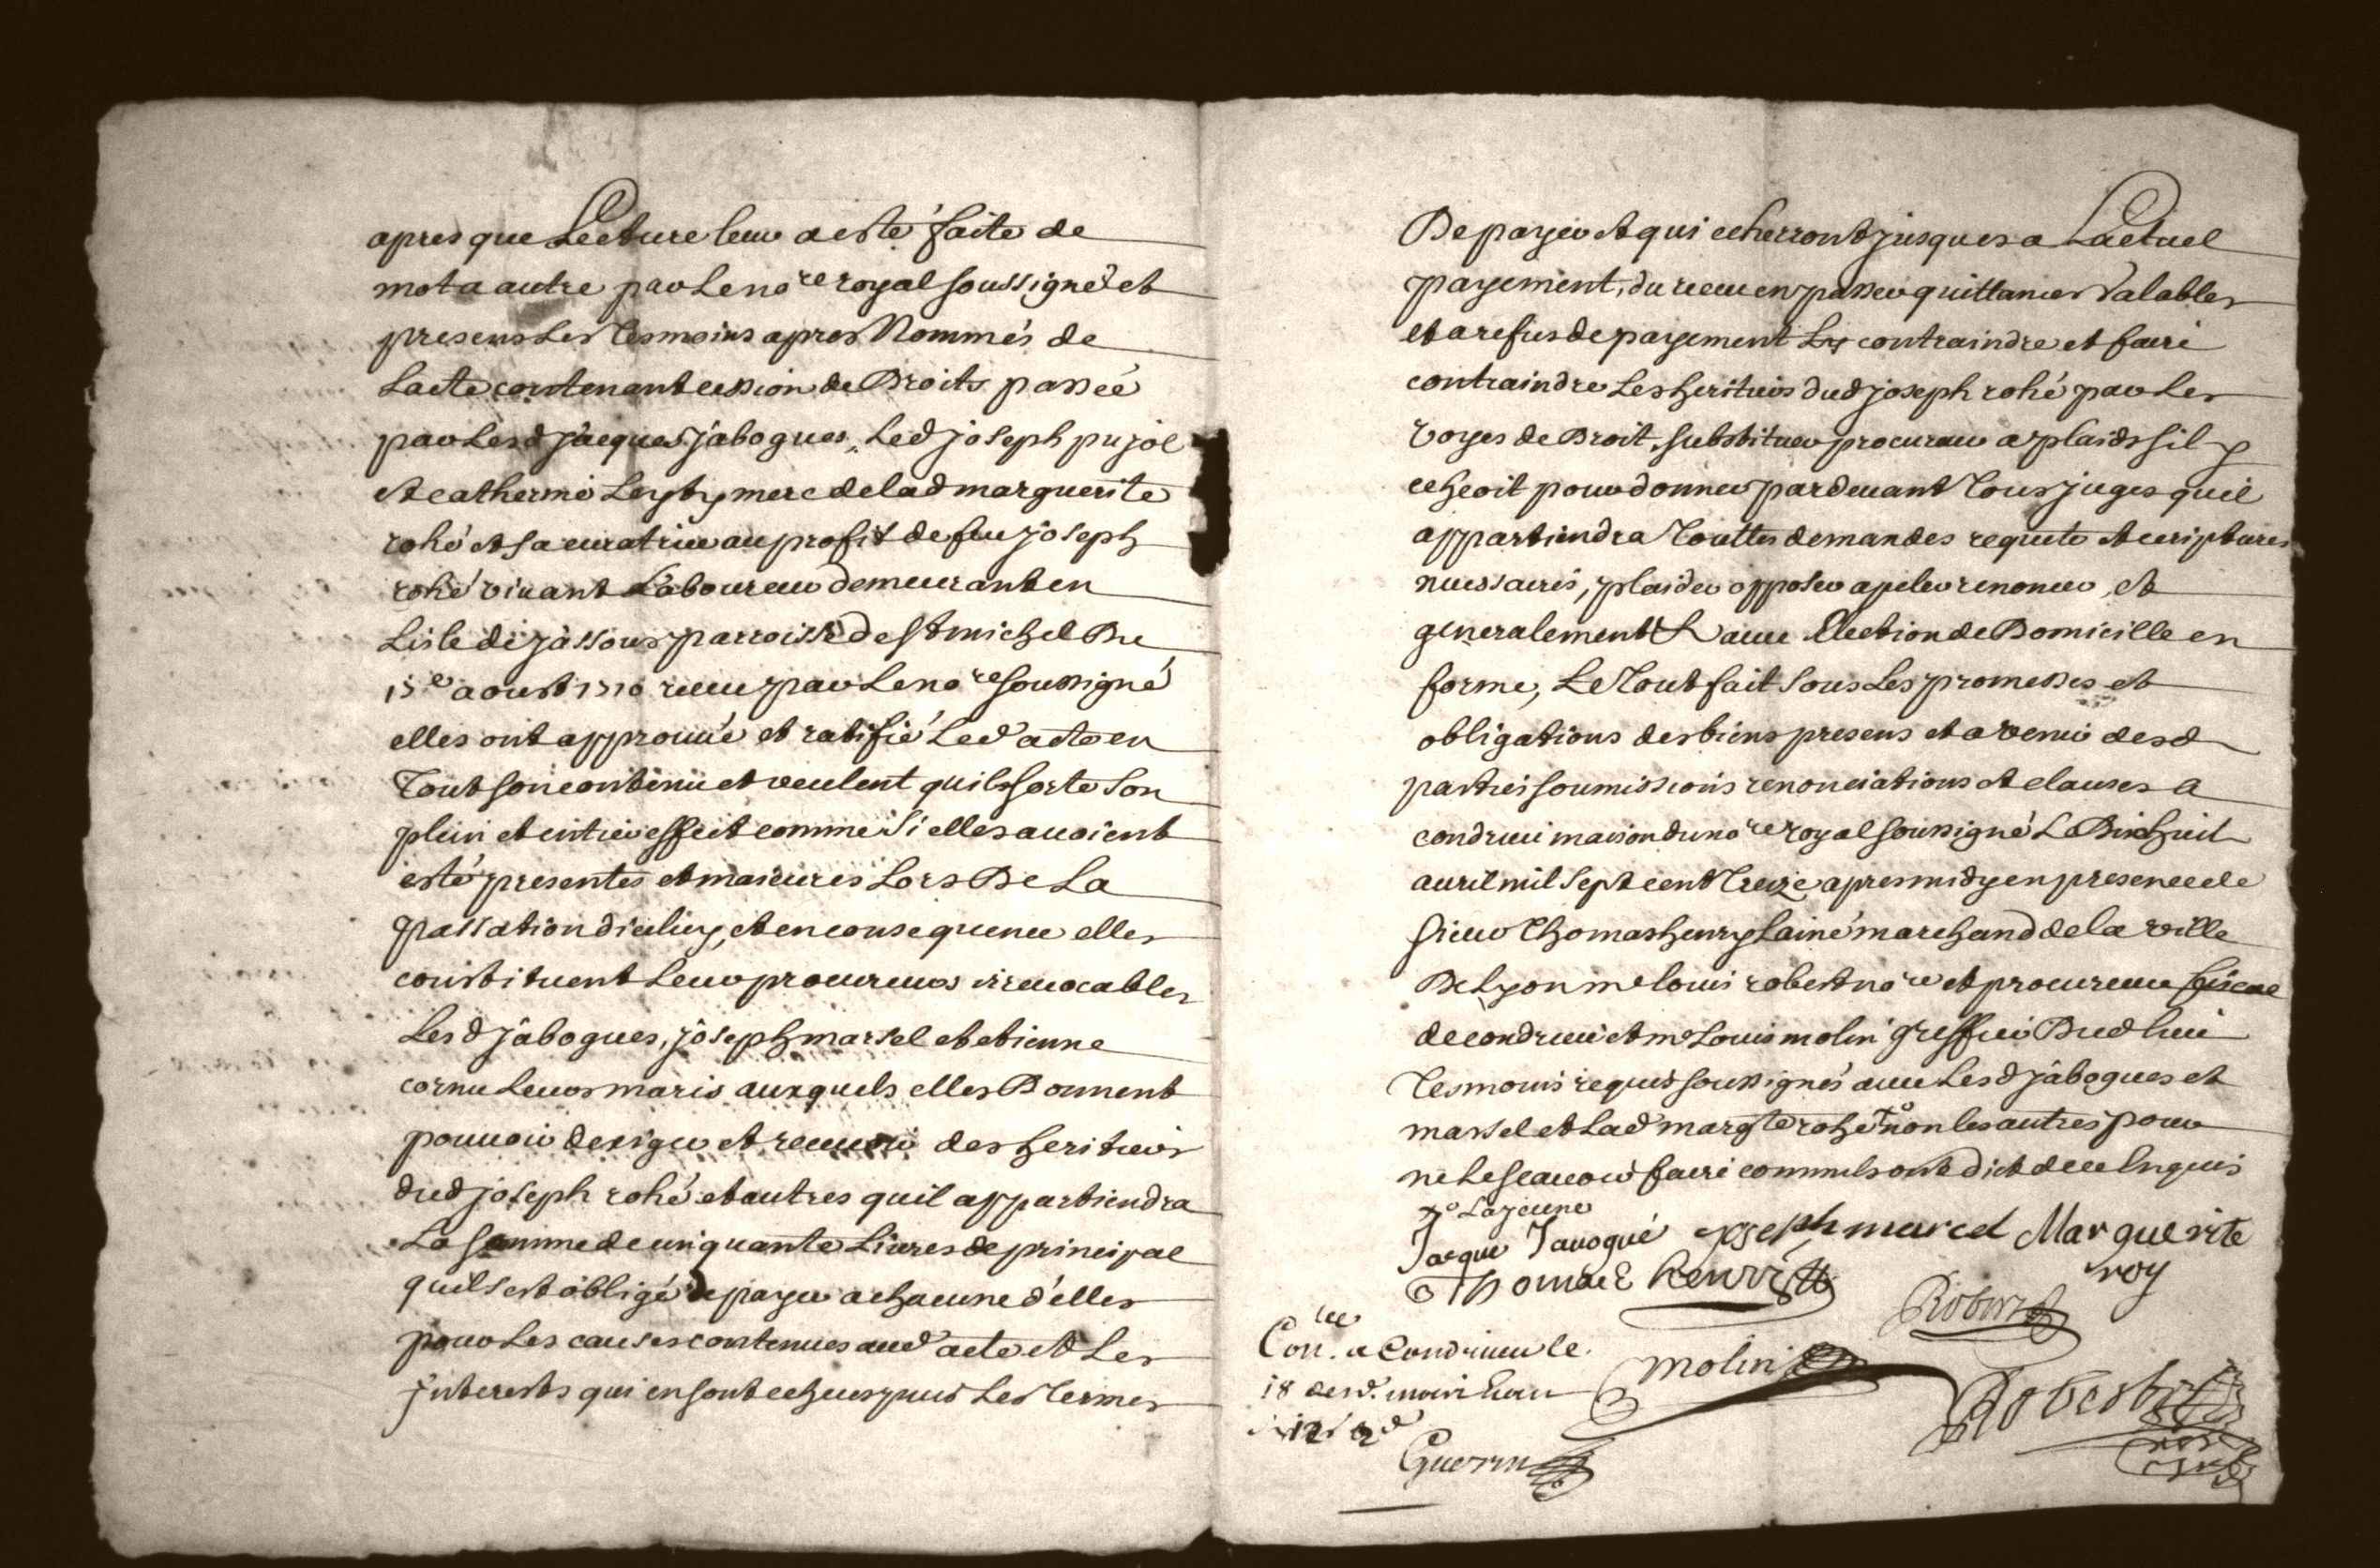 apres que Lecture leur a esté faite de
mot a autre par Le no.re royal soussigné et
presens Les Tesmoins apres Nommés de
Lacte contenant cession de Droits passée
par Lesd jacques jabogues, Led joseph pujol
et catherine mere de lad marguerite
rohé et sa curatrice au profit de feu joseph
rohé vivant Laboureur demeurant en
Lisle de jassoux parroisse de st michel Du
15e aoust 1710 receu par Le no.re soussigné
elles ont approuvé et ratifié Led acte en
Tout son contenu et veulent quil sorte Son
plein et entier effect comme Si elles avoient
esté presentes et majeures Lors De La
passation diceluy, et en consequence elles
constituent Leur procureurs irrevocables
Lesd jabogues, joseph marsel et etienne
cornu Leurs maris auxquels elles Donnent
pouvoir dexiger et recevoir des heritiers
dud joseph rohé et autres quil appartiendra
La somme de cinquante Livres de principal
quil sest obligé de payer a chacune d'elles
pour Les causes contenues aud acte et Les
jnterests qui en sont echeus puis Les Termes
De payer et qui echerront jusques a Lactuel
payement, du receu en passer quittances Valables
et a refus de payement Les contraindre et faire
contraindre Les heritiers dud joseph rohé par Les
voyes de Droit, substituer procureur a plaids sil y
echeoit pour donner pardevant Tous juges quil
appartiendra Touttes demandes requete et ecriptures
necessaires, plaider opposer apeler renoncer, et
generalement & avec Election de Domicille en
forme, Le Tout fait Sous Les promesses et
obligations des biens presens et a venir desd
parties soumissions renonciations et clauses a
condrieu maison du no.re royal soussigné Le Dixhuit
avril mil Sept cent Treize apres midy en presence de
sieur Thomas henry Lainé marchand de la ville
De Lyon me louis robert no.re et procureur fiscal
de condrieu et me Louis molin greffier Dud lieu
Tesmoins requis soussignés avec Lesd jabogues et
marsel et Lad margte rohé non les autres pour
ne Le scavoir faire comme ils ont dict de ce Enquis
Lajeune
Jacque Javogué joseph marcel Marguerite
roy
Thomas henry
Robert
Con.lée a Condrieu le
18 desd. mois
molin
Robert
12s
Guerin